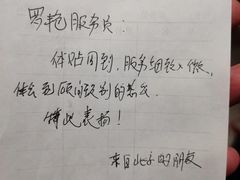 罗艳服务员：
体贴周到，服务细致入微，
体会到顾问级别的
特此表扬！
来自北京的朋友